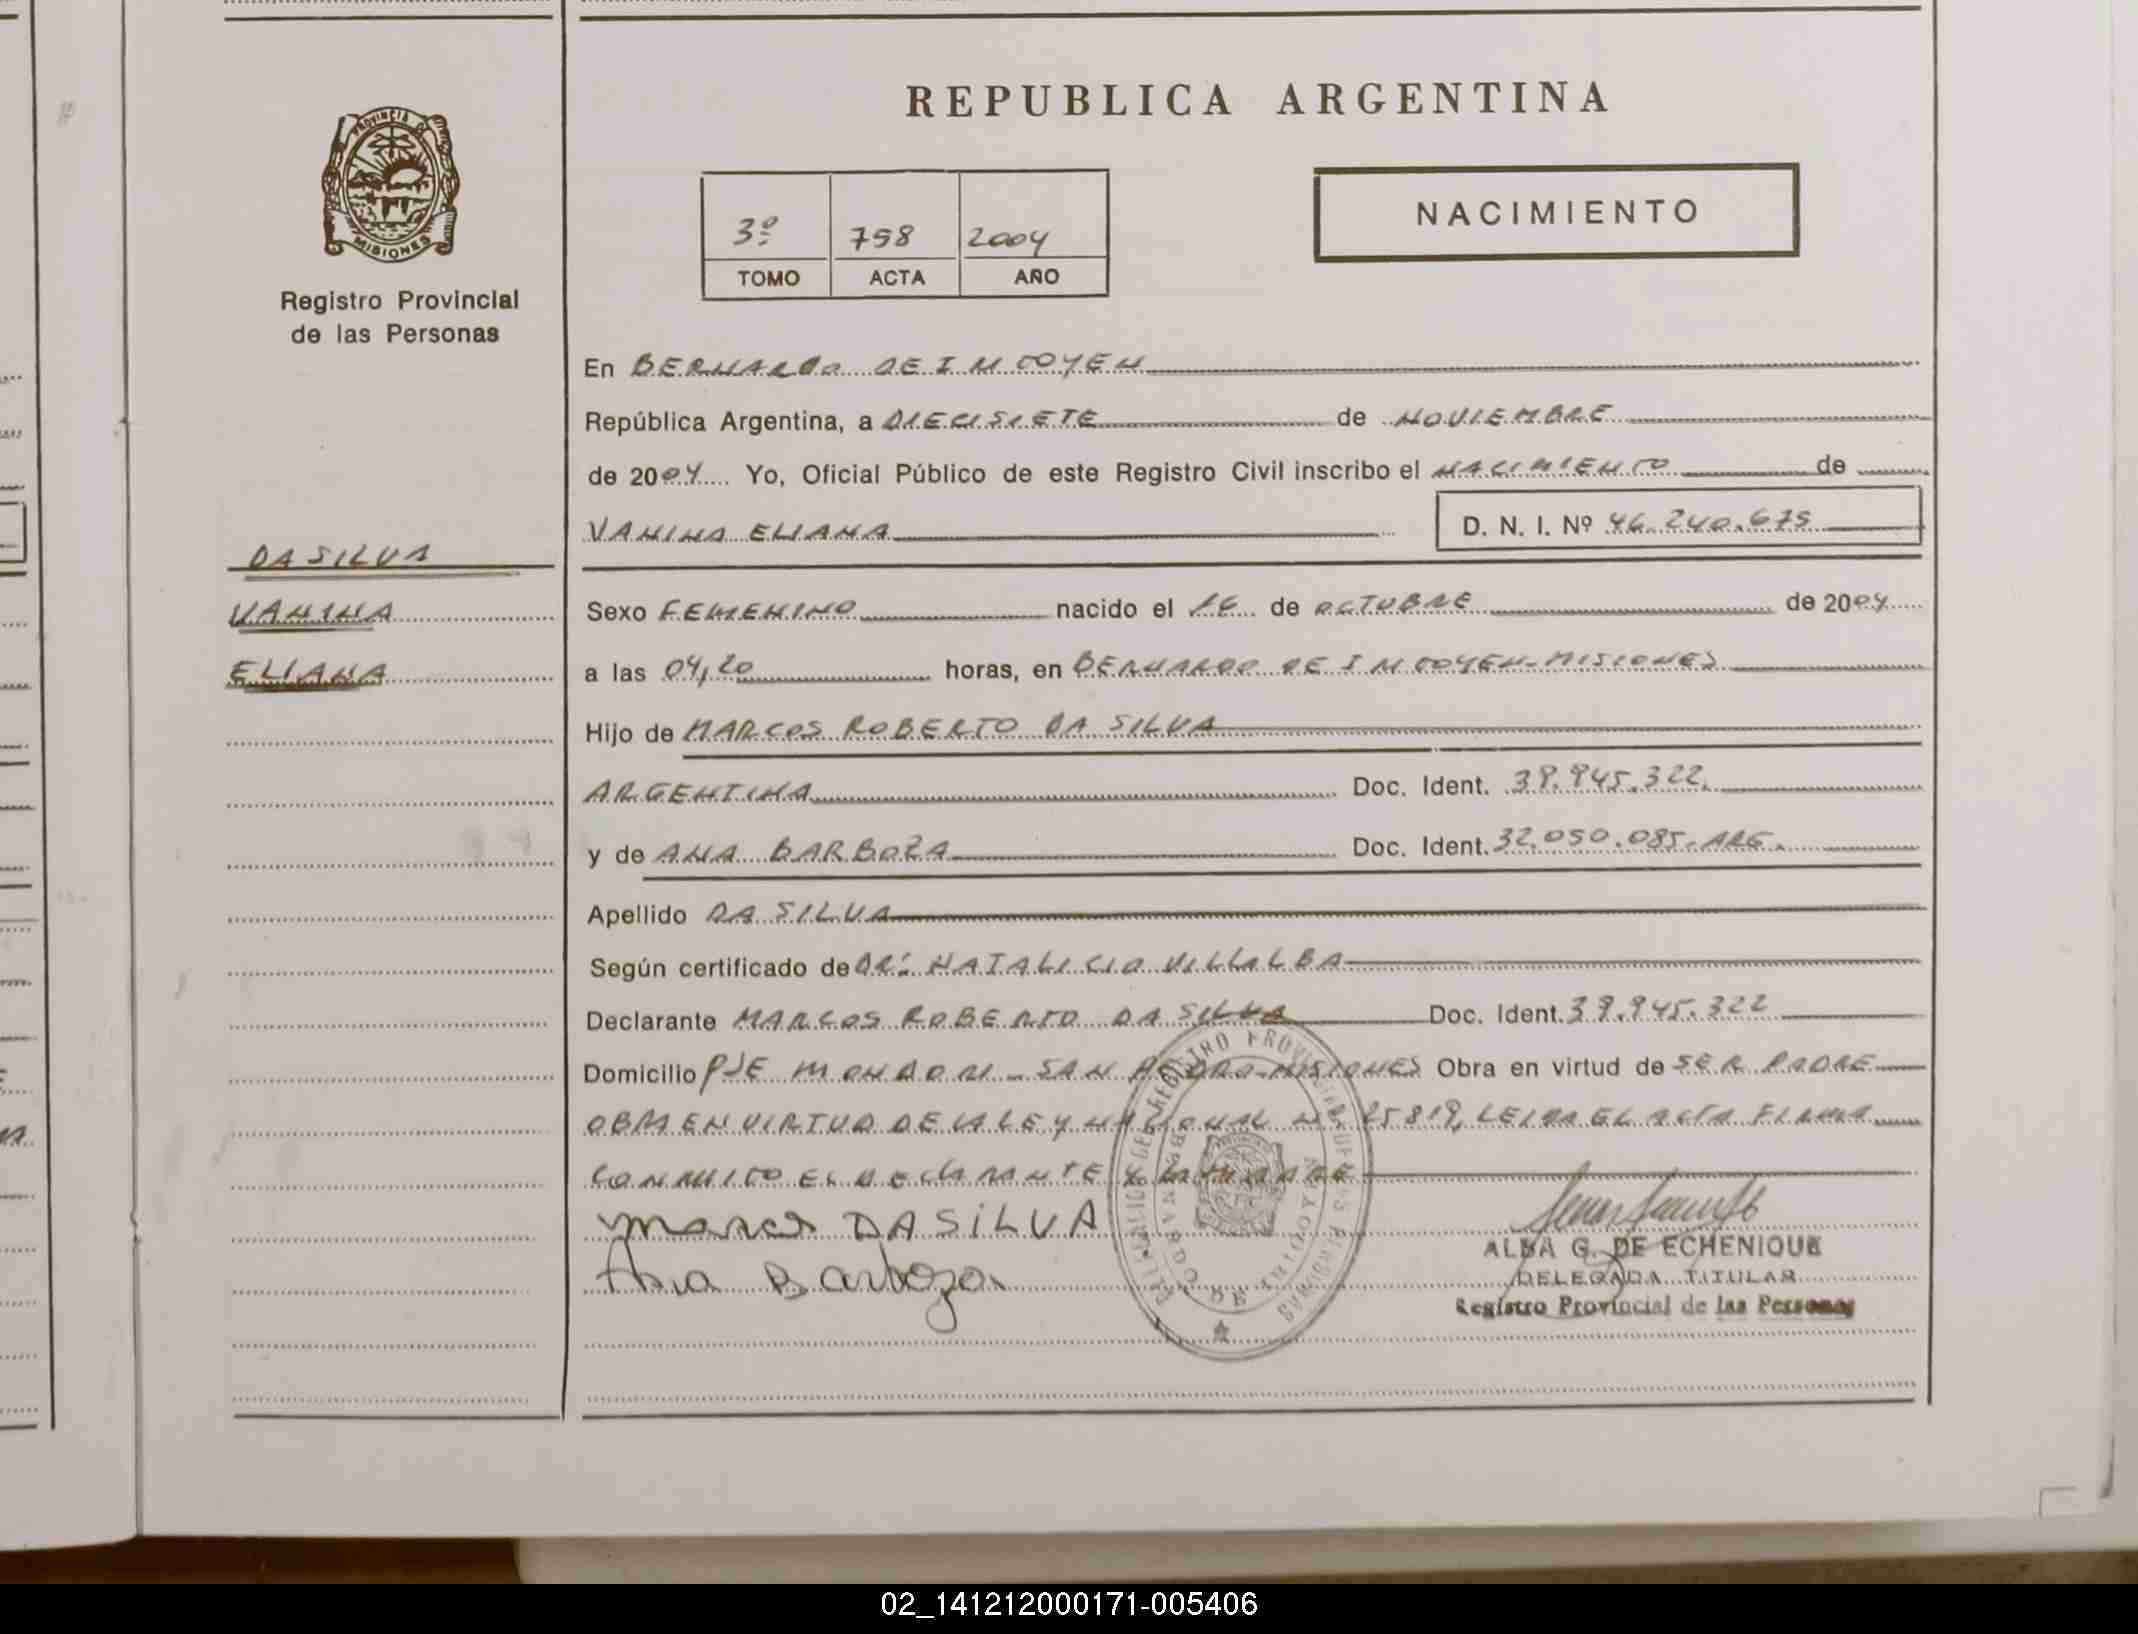 REPUBLICA ARGENTINA
PROVINCIA DE
MISIONES
Registro Provincial
de las Personas
3º 758 2004
TOMO ACTA AÑO
NACIMIENTO
En BERNARDO DE IRIGOYEN
República Argentina, a DIECISIETE de NOVIEMBRE
de 2004 Yo, Oficial Público de este Registro Civil inscribo el NACIMIENTO de
VANINA ELIANA D. N. I. Nº 46.240.675
DA SILVA
VANINA
ELIANA
Sexo FEMENINO nacido el 16 de OCTUBRE de 2004
a las 04,20 horas, en BERNARDO DE IRIGOYEN-MISIONES
Hijo de MARCOS ROBERTO DA SILVA
ARGENTINA Doc. Ident. 39.945.322
y de ANA BARBOZA Doc. Ident. 32.050.085-ARG.
Apellido DA SILVA
Según certificado de DR: NATALICIO VILLALBA
Declarante MARCOS ROBERTO DA SILVA Doc. Ident. 39.945.322
Domicilio PJE MONDORI - SAN PEDRO-MISIONES Obra en virtud de SER PADRE
OBRA EN VIRTUD DE LA LEY NACIONAL Nº 25819, LEIDA EL ACTA FIRMA
CONMIGO EL DECLARANTE Y LA MADRE
Marcos DA SILVA
Ana Barboza
ALBA G. DE ECHENIQUE
DELEGADA TITULAR
Registro Provincial de las Personas
02_141212000171-005406